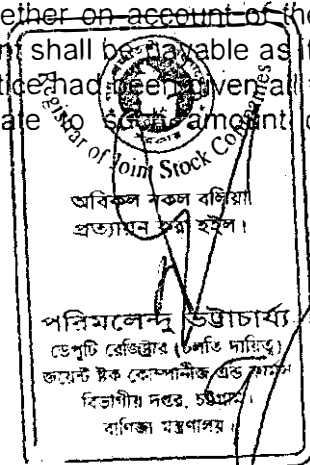 ether on account of the
nt shall be payable as if
tice had been given all t
ate to such amount
Registrar of Joint Stock Companies
অবিকল নকল বলিয়া
প্রত্যায়ন করা হইল।
পরিমলেন্দু ভট্টাচার্য্য
ডেপুটি রেজিষ্ট্রার (চলতি দায়িত্ব)
জয়েন্ট ষ্টক কোম্পানীজ এন্ড ফার্মস
বিভাগীয় দপ্তর, চট্টগ্রাম।
বাণিজ্য মন্ত্রণালয়।